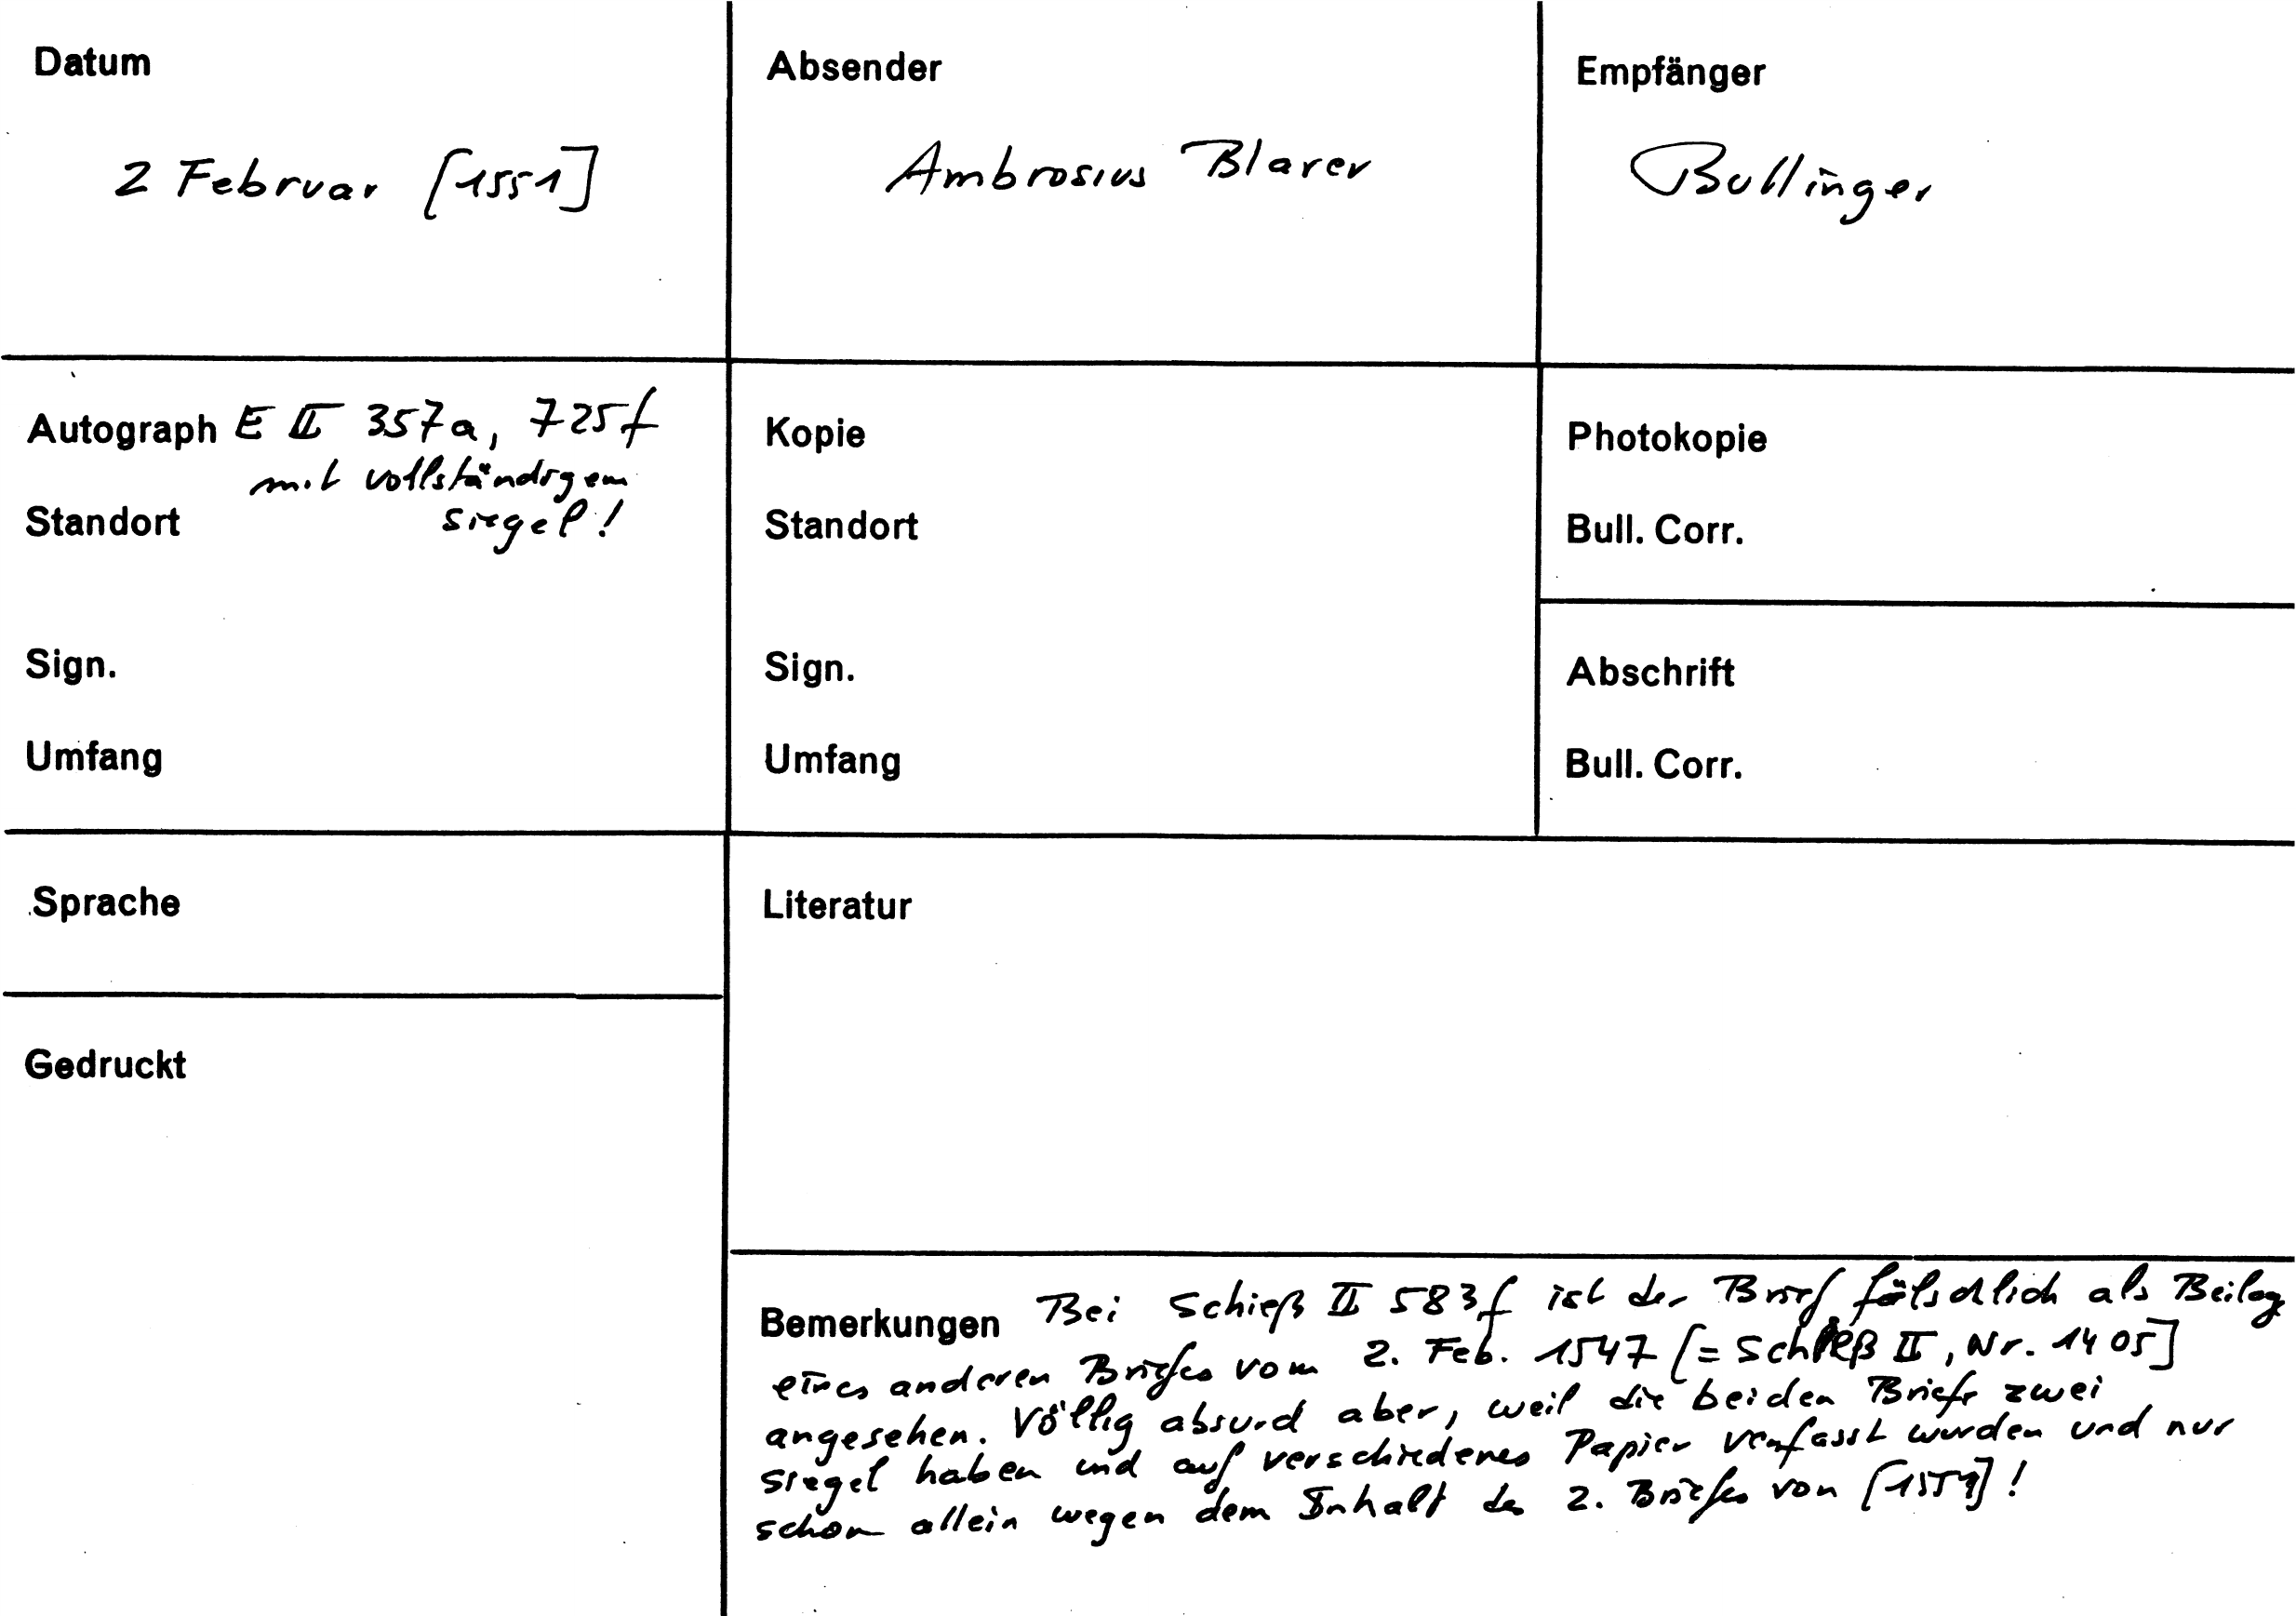 Datum
2 Februar [1551]
Absender
Ambrosius Blarer
Empfänger
Bullinger
Autograph E II 357a, 725f
mit vollständigem
Siegel!
Standort
Sign.
Umfang
Kopie
Standort
Sign.
Umfang
Photokopie
Bull. Corr.
Abschrift
Bull. Corr.
Sprache
Gedruckt
Literatur
Bemerkungen Bei Schieß II 583f ist der Brief fälschlich als Beilag
eines anderen Briefes vom 2. Feb. 1547 [= Schieß II, Nr. 1405]
angesehen. Völlig absurd aber, weil die beiden Briefe zwei
Siegel haben und auf verschiedenes Papier verfasst wurden und nur
schon allein wegen dem Inhalt des 2. Briefes von [1551]!